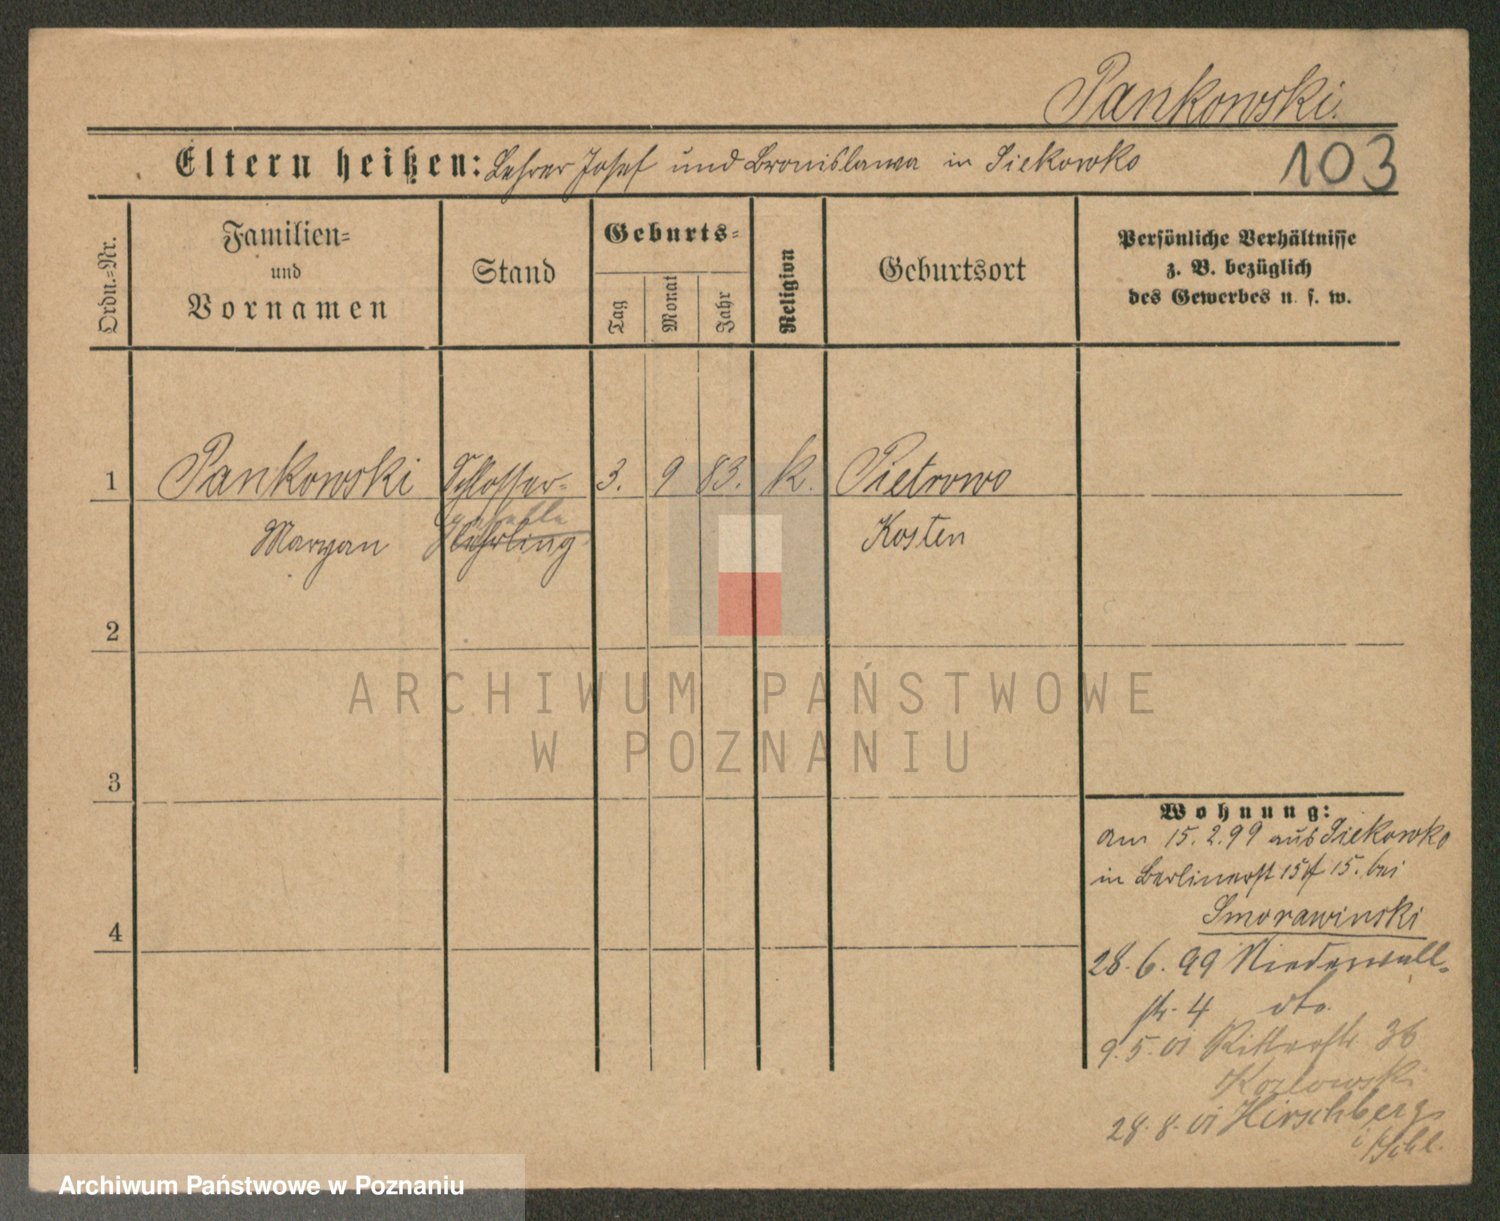 Pankowski.
Eltern heißen: Lehrer Josef und Bronislawa in Siekowko
103
Ordn.-Nr.
Familien- und Vornamen
Stand
Geburts-
Tag
Monat
Jahr
Religion
Geburtsort
Persönliche Verhältnisse
z. B. bezüglich
des Gewerbes u. s. w.
1 Pankowski Schlosser- 3. 9 83. k. Pietrowo
geselle
Maryan lehrling Kosten
2
3
4
ARCHIWUM PAŃSTWOWE
W POZNANIU
Wohnung:
am 15.2.99 aus Siekowko
in Berlinerst 15 15. bei
Smorawinski
28.6.99 Niederwall-
str. 4 dto.
9.5.01 Ritterstr 36
Kozlowski
28.8.01 Hirschberg
i/Schl.
Archiwum Państwowe w Poznaniu